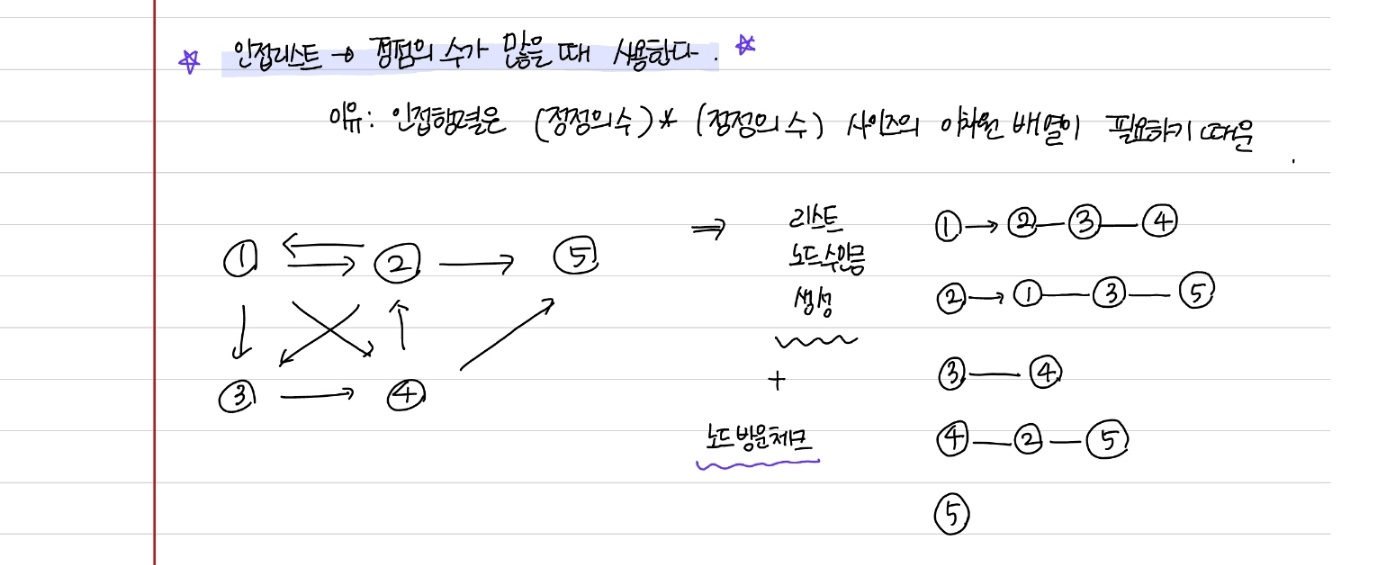 ☆ 인접리스트 → 정점의 수가 많을 때 사용한다. ☆
이유: 인접행렬은 (정점의 수) * (정점의 수) 사이즈의 이차원 배열이 필요하기 때문.
① ② ⑤
③ ④
⇒ 리스트
노드수만큼
생성
+
노드 방문체크
① → ② — ③ — ④
② → ① — ③ — ⑤
③ — ④
④ — ② — ⑤
⑤